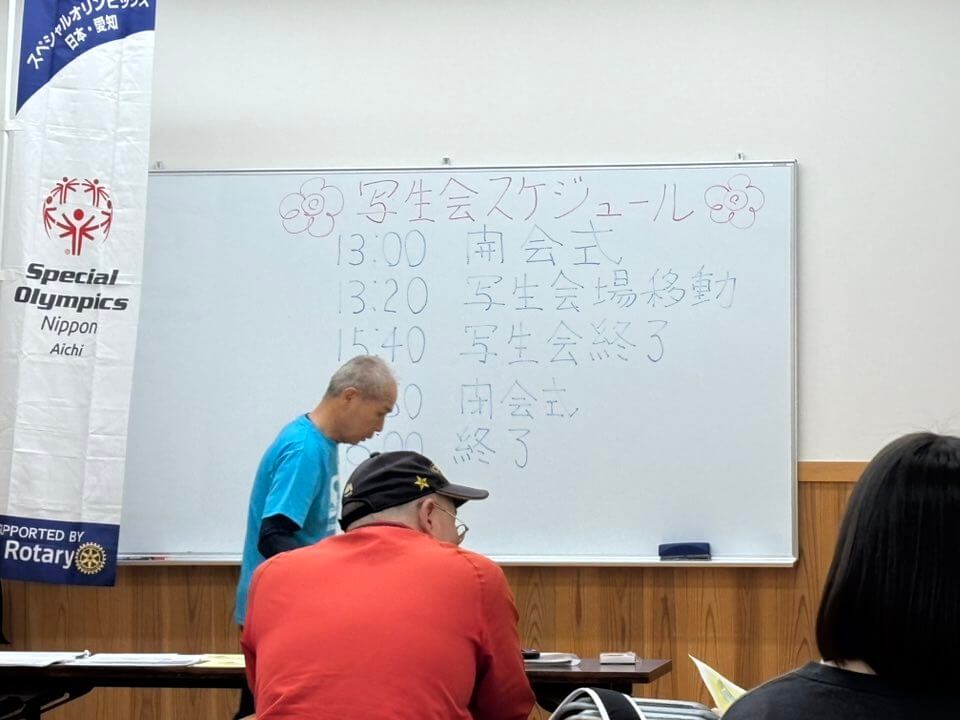 スペシャルオリンピックス
日本・愛知
Special
Olympics
Nippon
Aichi
SUPPORTED BY
Rotary
写生会スケジュール
13:00 開会式
13:20 写生会場移動
15:40 写生会終了
閉会式
終了